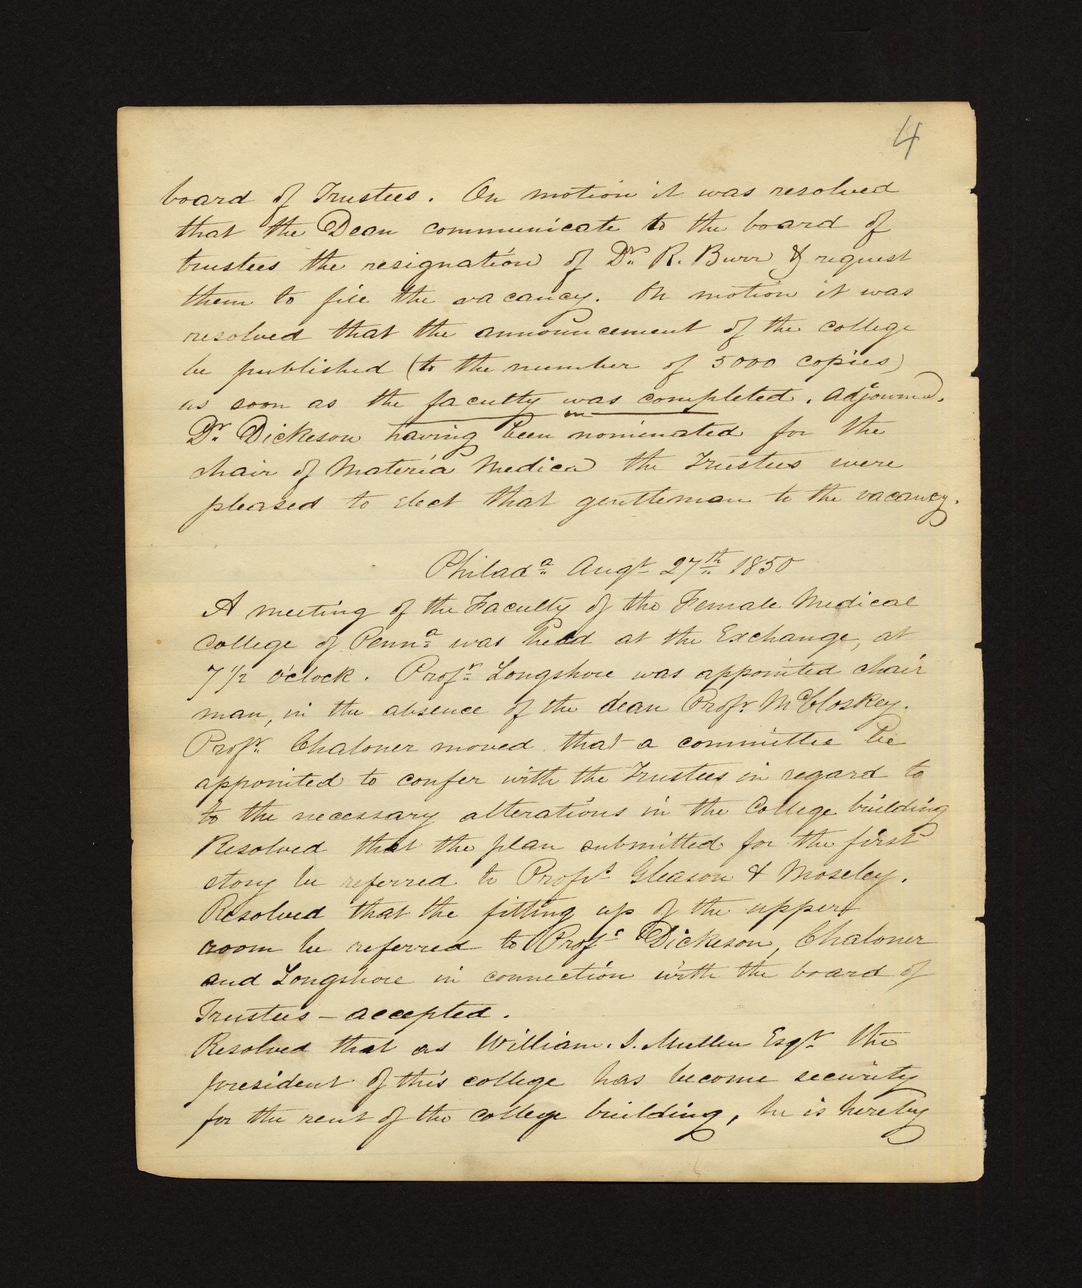 4
board of Trustees. On motion it was resolved
that the Dean communicate to the board of
trustees the resignation of Dr. R. Burr & request
them to file the vacancy. On motion it was
resolved that the announcement of the college
be published (to the number of 5000 copies)
as soon as the faculty was completed. adjourned.
Dr. Dickeson having been nominated for the
chair of Materia Medica the Trustees were
pleased to elect that gentleman to the vacancy.
Philada. Augt 27th 1850
A meeting of the Faculty of the Female Medical
College of Penna. was held at the Exchange, at
7 1/2 o'clock. Profr. Longshore was appointed chair
man, in the absence of the dean Profr McCloskey.
Profr. Chaloner moved that a committee be
appointed to confer with the Trustees in regard to
to the necessary alterations in the College building
Resolved that the plan submitted for the first
story be referred to Profrs Gleason & Moseley.
Resolved that the fitting up of the upper
room be referred to Profs Dickeson, Chaloner
and Longshore in connection with the board of
Trustees – accepted.
Resolved that as William. J. Mullen Esqr. the
president of this college has become security
for the rent of the college building, he is hereby